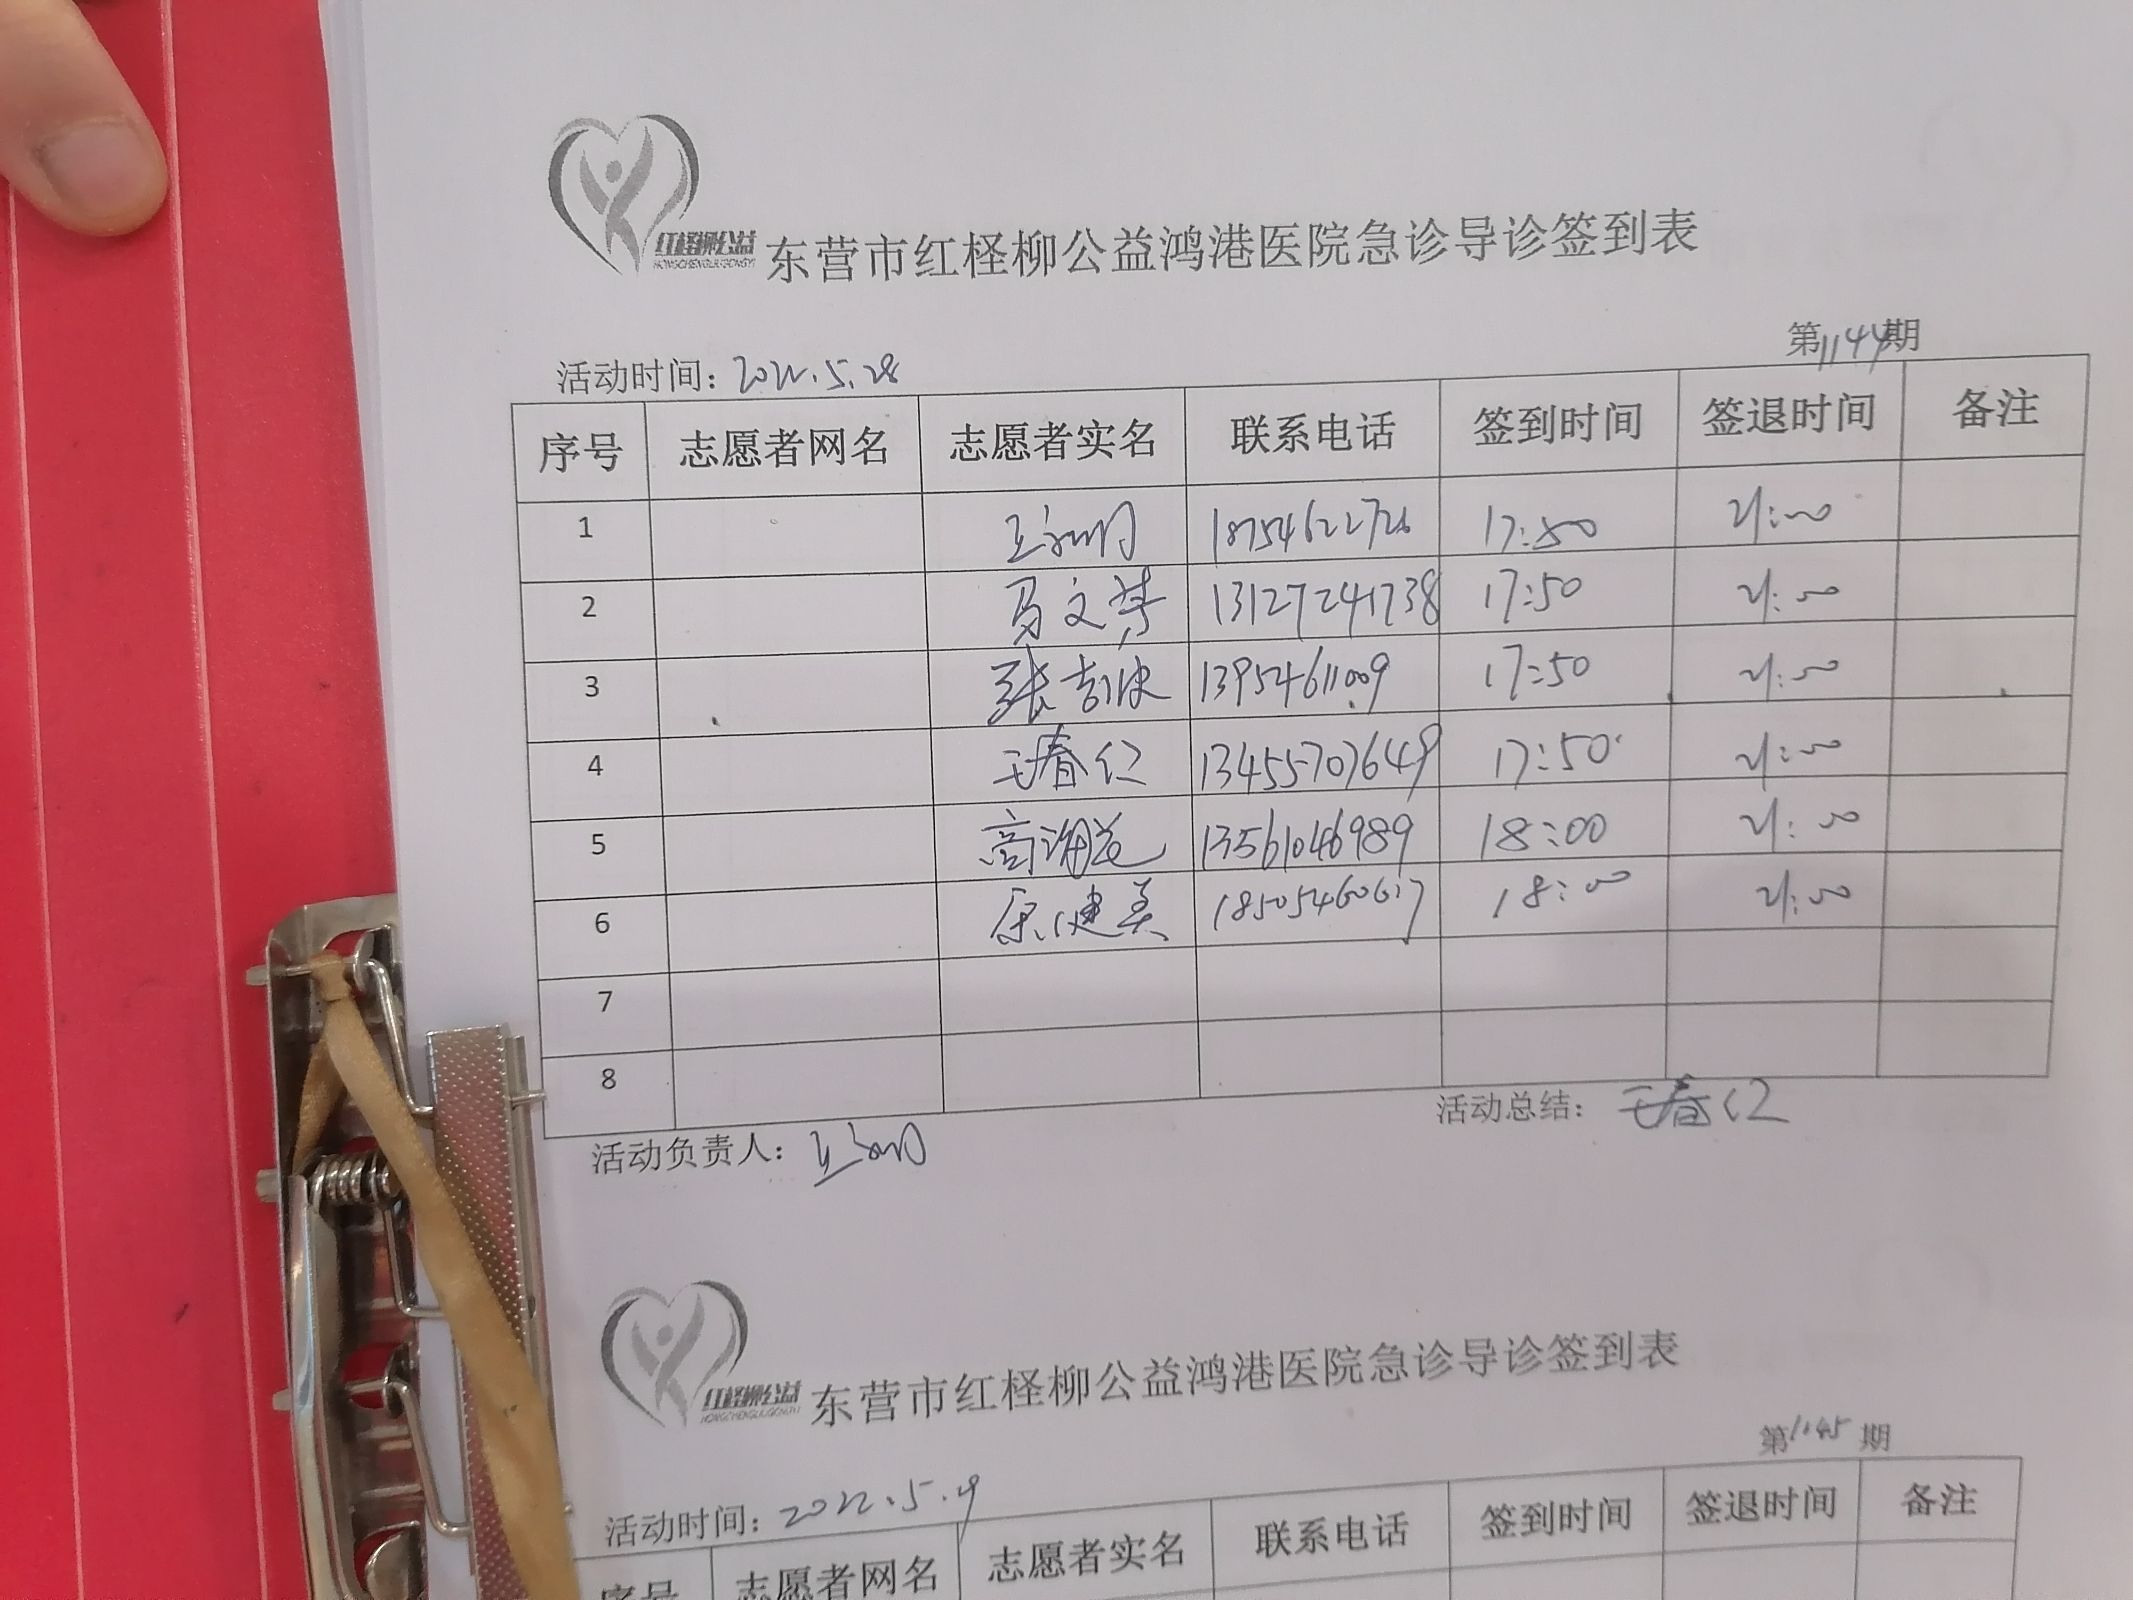 红柽柳公益
HONGCHENGLIUGONGYI
东营市红柽柳公益鸿港医院急诊导诊签到表
第1144期
活动时间：2022.5.28
序号 志愿者网名 志愿者实名 联系电话 签到时间 签退时间 备注
1 18754622726 17:50 21:00
2 马文 13127241738 17:50 21:00
3 张 13954611009 17:50 21:00
4 王春仁 13455707649 17:50 21:00
5 高海花 13561046989 18:00 21:00
6 康健美 18505460617 18:00 21:00
7
8
活动负责人： 活动总结：王春仁
红柽柳公益
HONGCHENGLIUGONGYI
东营市红柽柳公益鸿港医院急诊导诊签到表
第1145期
活动时间：2022.5.29
序号 志愿者网名 志愿者实名 联系电话 签到时间 签退时间 备注